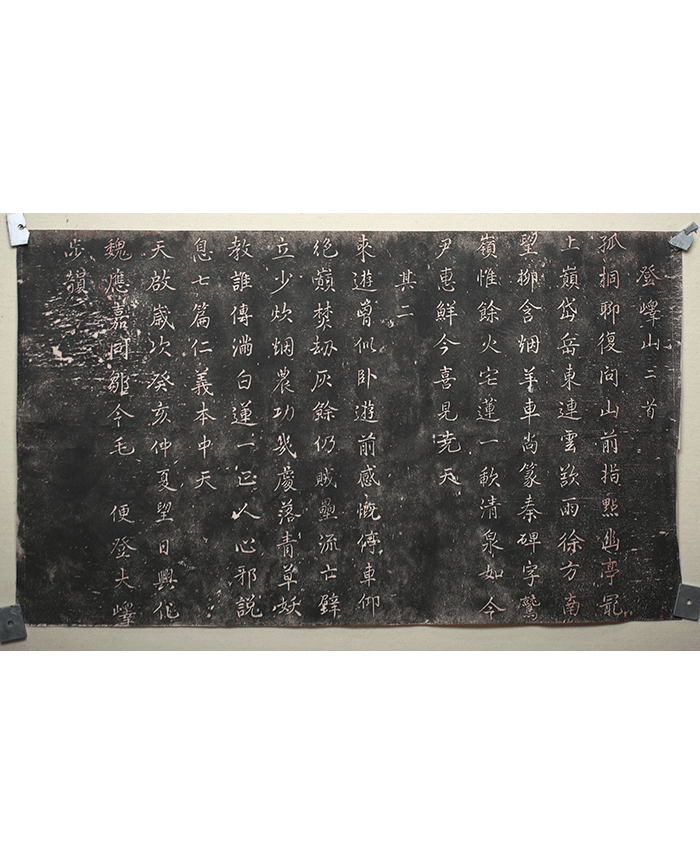 登嶧山二首
孤桐聊復问山前指點幽亭最
上巔岱岳東連雲歎雨徐方南
望柳含烟羊車尚篆秦碑字鷲
嶺惟餘火宅蓮一歃清泉如今
尹惠鮮今喜見尭天
其二
来遊嘗似卧遊前感慨停車仰
絶巔焚劫灰餘仍賊壘流亡肄
立少炊烟農功幾處落青草妖
教誰傳滿白蓮一正人心邪說
息七篇仁義本中天
天啟歲次癸亥仲夏望日興化
魏應嘉同鄒令毛 便登大嶧
步韻